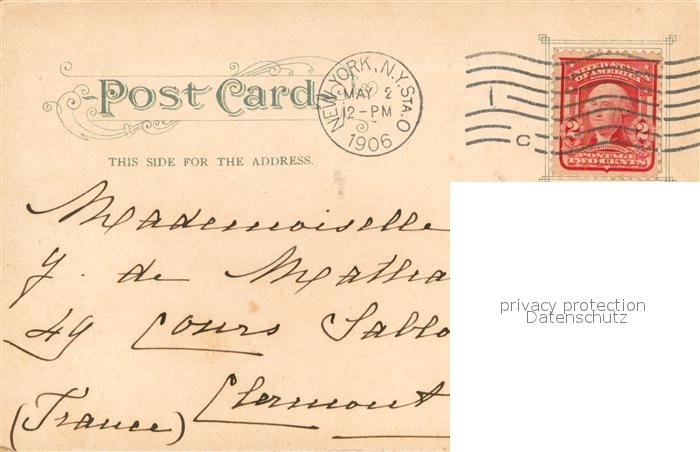 Post Card
NEW YORK, N.Y. STA. O
MAY 2
12-PM
1906
1
C
UNITED STATES
OF AMERICA
2 2
POSTAGE
TWO CENTS
THIS SIDE FOR THE ADDRESS.
Mademoiselle
de
49 Cours Sablo
Clermont
(France)
privacy protection
Datenschutz